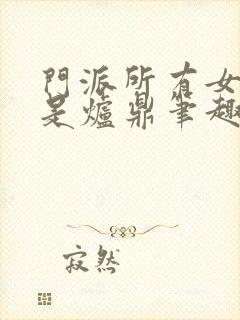 門派所有女
是爐鼎筆趣
寂然